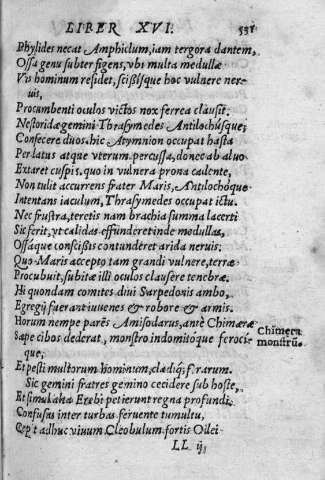 LIBER XVI. 531
Phylides necat Amphiclum, iam tergora dantem,
Ossa genu subter figens, vbi multa medullæ
Vis hominum residet, scißisque hoc vulnere ner-
uis,
Procumbenti oculos victos nox ferrea clausit.
Nestoridæ gemini Thrasymedes Antilochúsque;
Confecere duos, hic Atymnion occupat hasta
Per latus atque vterum percussa, donec ab aluo
Extaret cuspis, quo in vulnera prona cadente,
Non tulit accurrens frater Maris, Antilochóque
Intentans iaculum, Thrasymedes occupat ictu.
Nec frustra, teretis nam brachia summa lacerti
Sic ferit, vt calidas effunderet inde medullas,
Ossáque conscißis contunderet arida neruis:
Quo Maris accepto tam grandi vulnere, terræ
Procubuit, subitæ illi oculos clausere tenebræ.
Hi quondam comites diui Sarpedonis ambo,
Egregij fuerant iuuenes & robore & armis.
Horum nempe parẽs Amisodarus, antè Chimæræ
Sæpe cibos dederat, monstro indomitóque ferocí-
que;
Chimæra
monstrũ
Et pesti multorum hominum, cladíq; ferarum.
Sic gemini fratres gemino cecidere sub hoste,
Et simul ad Erebi petierunt regna profundi.
Confusus inter turbas feruente tumultu,
Cepit adhuc viuum Cleobulum fortis Oilei
LL ij